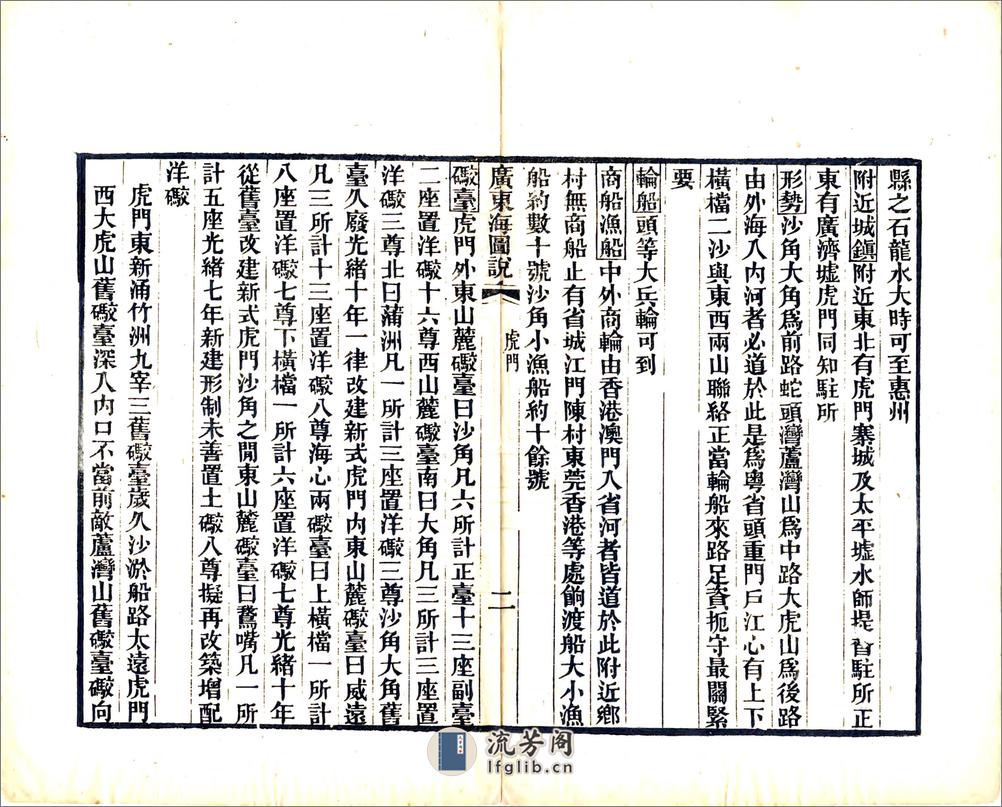 縣之石龍水大時可至惠州
附近城鎮附近東北有虎門寨城及太平墟水師提督駐所正
東有廣濟墟虎門同知駐所
形勢沙角大角爲前路蛇頭灣蘆灣山爲中路大虎山爲後路
由外海入內河者必道於此是爲粵省頭重門戶江心有上下
橫檔二沙與東西兩山聯絡正當輪船來路足資扼守最關緊
要
輪船頭等大兵輪可到
商船漁船中外商輪由香港澳門入省河者皆道於此附近鄉
村無商船止有省城江門陳村東莞香港等處餉渡船大小漁
船約數十號沙角小漁船約十餘號
廣東海圖說
虎門
二
礮臺虎門外東山麓礮臺曰沙角凡六所計正臺十三座副臺
二座置洋礮十六尊西山麓礮臺南曰大角凡三所計三座置
洋礮三尊北曰蒲洲凡一所計三座置洋礮三尊沙角大角舊
臺久廢光緒十年一律改建新式虎門內東山麓礮臺曰威遠
凡三所計十三座置洋礮八尊海心兩礮臺曰上橫檔一所計
八座置洋礮七尊下橫檔一所計六座置洋礮七尊光緒十年
從舊臺改建新式虎門沙角之閒東山麓礮臺曰鵞嘴凡一所
計五座光緒七年新建形制未善置土礮八尊擬再改築增配
洋礮
虎門東新涌竹洲九宰三舊礮臺歲久沙淤船路太遠虎門
西大虎山舊礮臺深入內口不當前敵蘆灣山舊礮臺礮向
流芳阁
lfglib.cn